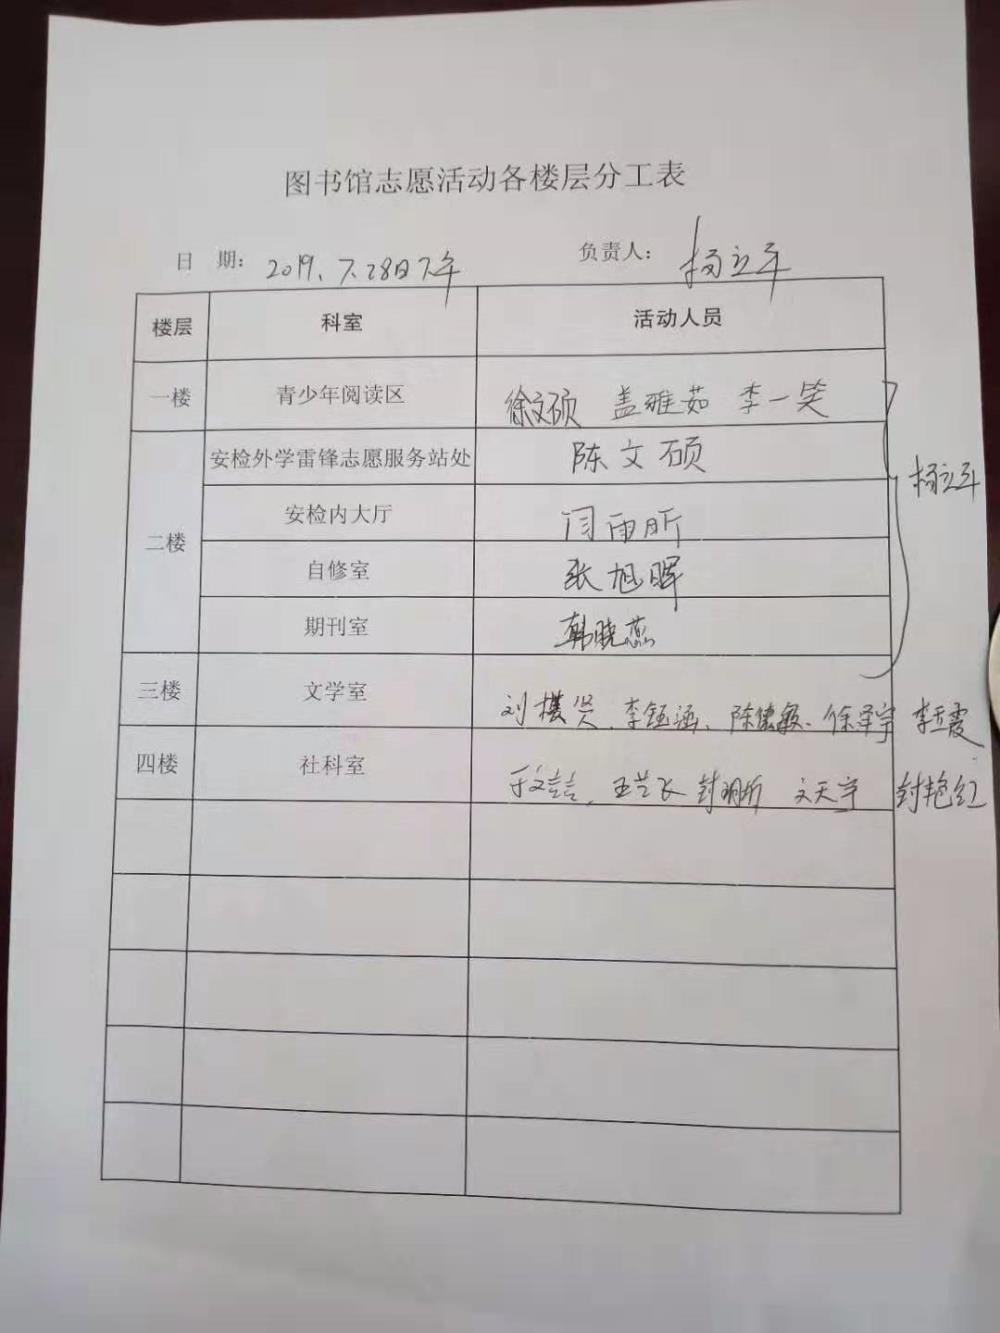 图书馆志愿活动各楼层分工表
日 期: 2019、7.28日下午 负责人: 杨立平
楼层 科室 活动人员
一楼 青少年阅读区 徐文硕 盖雅茹 李一笑
二楼 安检外学雷锋志愿服务站处 陈文硕
杨立平
安检内大厅 闫雨昕
自修室 张旭晖
期刊室 韩晓蕊
三楼 文学室 刘 贤、李钰涵、陈 敏、徐泽宇 李玉霞
四楼 社科室 于文喆、王艺飞 封明昕 文天宇 封艳红